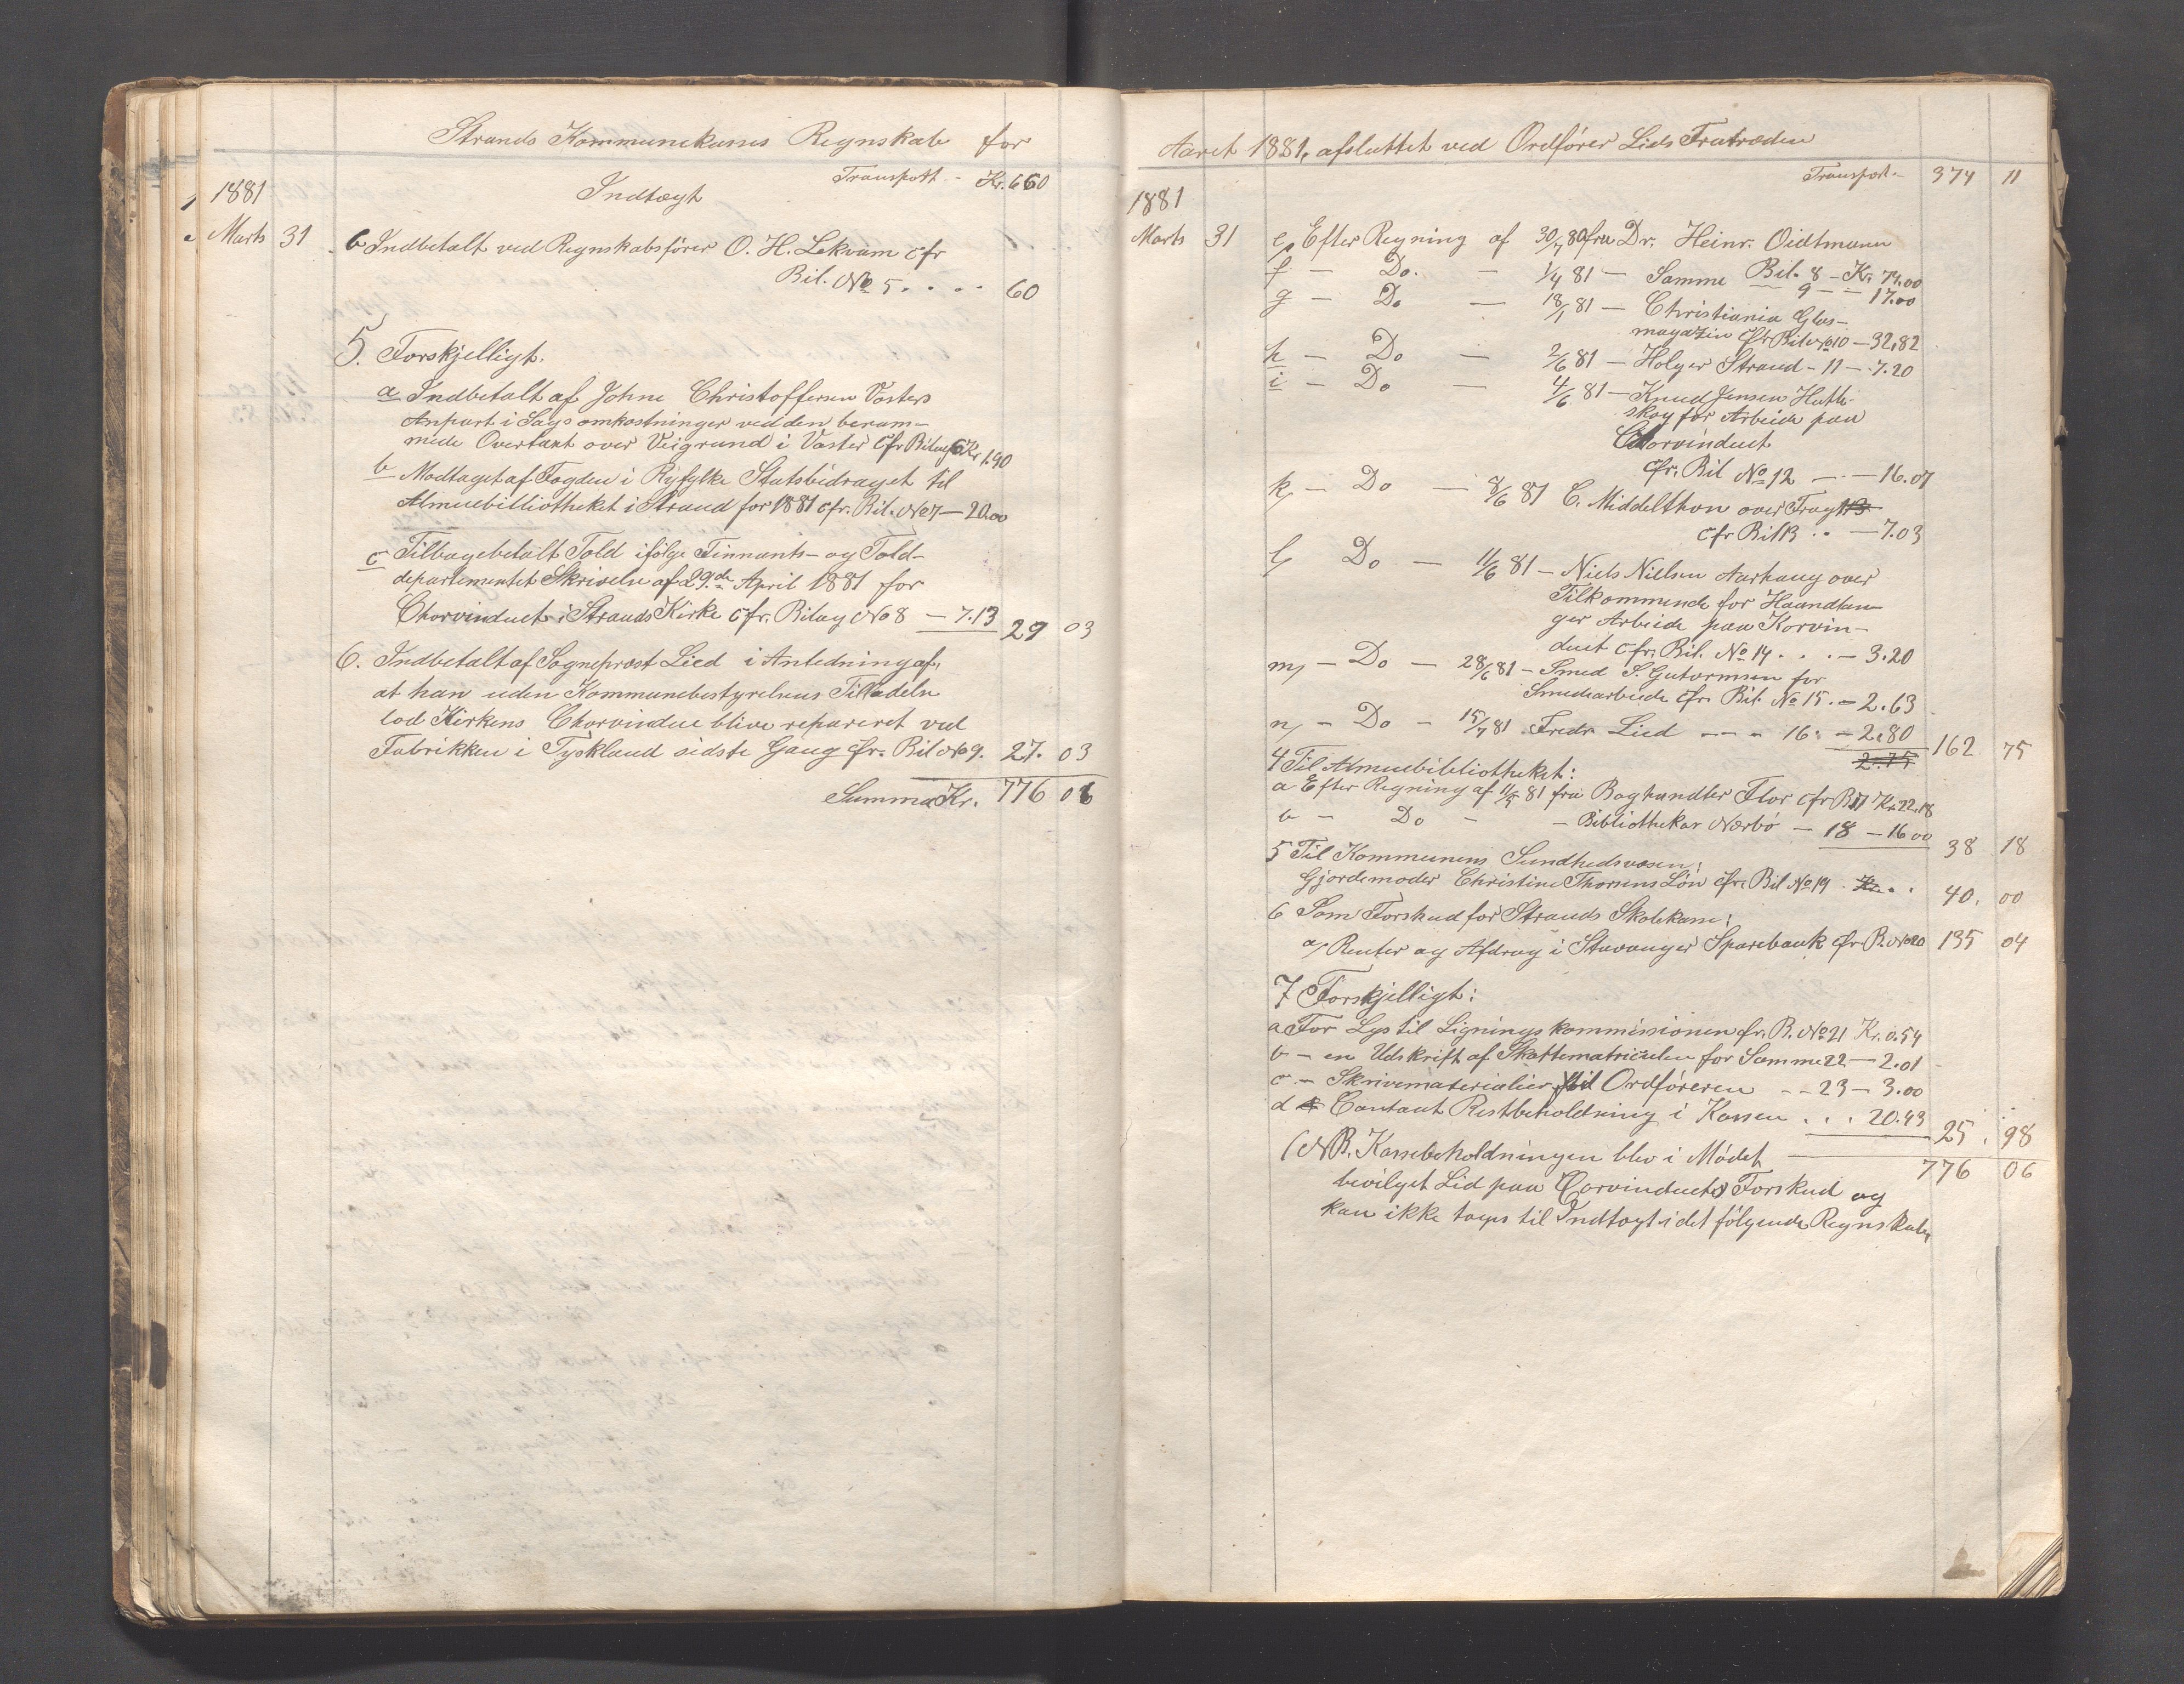 Strands Kommunekasses Regnskab for
Transport - Kr. 660
1881
Indtægt
Marts 31 b Indbetalt ved Regnskabsfører O. H. Lekvam cfr
Bil. No 5 . . . . 60
5. Forskjelligt.
a Indbetalt af Johne Christoffersen Vosters
Anpart i Sagsomkostninger ved den beram-
mede Overtaxt over Veigrund i Voster Cfr Bilag 6 Kr 1.90
b Modtaget af Fogden i Ryfylke Statsbidraget til
Almuebibliotheket i Strand for 1881 cfr. Bil. No 7 — 20.00
c Tilbagebetalt Told ifølge Finnants- og Told-
departementet Skrivelse af 29de April 1881 for
Chorvinduet i Strands Kirke Cfr. Bilag No 8 — 7.13 29 03
6. Indbetalt af Sogneprest Lied i Anledning af,
at han uden Kommunebestyrelsens Tilladelse
lod Kirkens Chorvindue blive repareret ved
Fabrikken i Tyskland sidste Gang cfr. Bil No 9. 27. 03
Summa Kr. 776 06
Aaret 1881, afsluttet ved Ordfører Lieds Fratræden
Transport - 374 11
1881
Marts 31 e, Efter Regning af 30/7 80 fra Dr. Heinr. Oidtmann
Bil. 8 - Kr. 74.00
f — Do. — 1/4 81 — Samme 9 — — 17.00
g — Do — 18/1 81 — Christiania Glas-
magazin Cfr Bil No 10 — 32.82
h — Do — 2/6 81 — Holger Strand - 11 — 7.20
i — Do — 4/6 81 — Knud Jensen Hatle-
skog for Arbeide paa
Chorvinduet
cfr. Bil No 12 — — 16.07
k, — Do — 8/6 81 C. Middelthon over Fragt 13
cfr Bil 13 . . — 7.03
l, Do — 11/6 81 — Niels Nielsen Aarhaug over
Tilkommende for Haandlan-
ger Arbeide paa Korvin-
duet cfr. Bil. No 14 . . . — 3.20
m, — Do — 28/6 81 — Smed S. Gutormsen for
Smedearbeide cfr. Bil. No 15. — 2.63
n, — Do — 15/7 81 Fredr Lied — — " 16. — 2.80 162 75
2.75
4 Til Almuebibliotheket:
a Efter Regning af 11/5 81 fra Boghandler Flor cfr B 17 Kr. 22.18
b — Do — — Bibliothekar Nærbø — 18 — 16 00 38 18
5 Til Kommunens Sundhedsvæsen:
Gjordemoder Christine Thorsens Løn cfr. Bil No 19 . Kr. . . 40. 00
6 Som Forskud for Strands Skolekasse:
a, Renter og Afdrag i Stavanger Sparebank cfr B. No 20 135 04
7 Forskjelligt:
a For Lys til Ligningskommissionen cfr. B. No 21 Kr. 0.54
b — en Udskrift af Skattematriculen for Samme 22 — 2.01
c — Skrivematerialier til Ordføreren — — 23 — 3.00
d Contant Restbeholdning i Kassen . . . 20.43 25. 98
(NB. Kassebeholdningen blev i Mødet 776 06
bevilget Lied paa Corvinduets Forskud og
kan ikke tages til Indtægt i det følgende Regnskab)